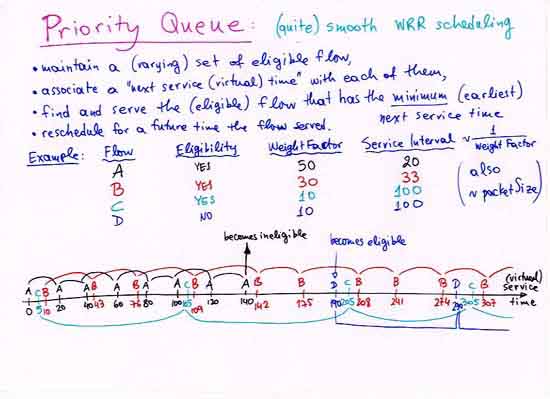 Priority Queue: (quite) smooth WRR scheduling
• maintain a (varying) set of eligible flow,
• associate a "next service (virtual) time" with each of them,
• find and serve the (eligible) flow that has the minimum (earliest)
next service time
• reschedule for a future time the flow served.
Example: Flow Eligibility Weight Factor Service Interval ~ 1/Weight Factor
A YES 50 20
B YES 30 33
C YES 10 100
D NO 10 100
(also ~ packet Size)
becomes ineligible becomes eligible
A C B A A B A B A A C B A A B B D C B B B D C B (virtual) service time
0 5 10 20 40 43 60 76 80 100 105 109 120 140 142 175 190 205 208 241 274 290 305 307